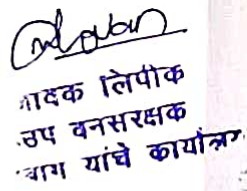 गादक लिपीक
उप वनसरक्षक
भाग यांचे कार्यालय